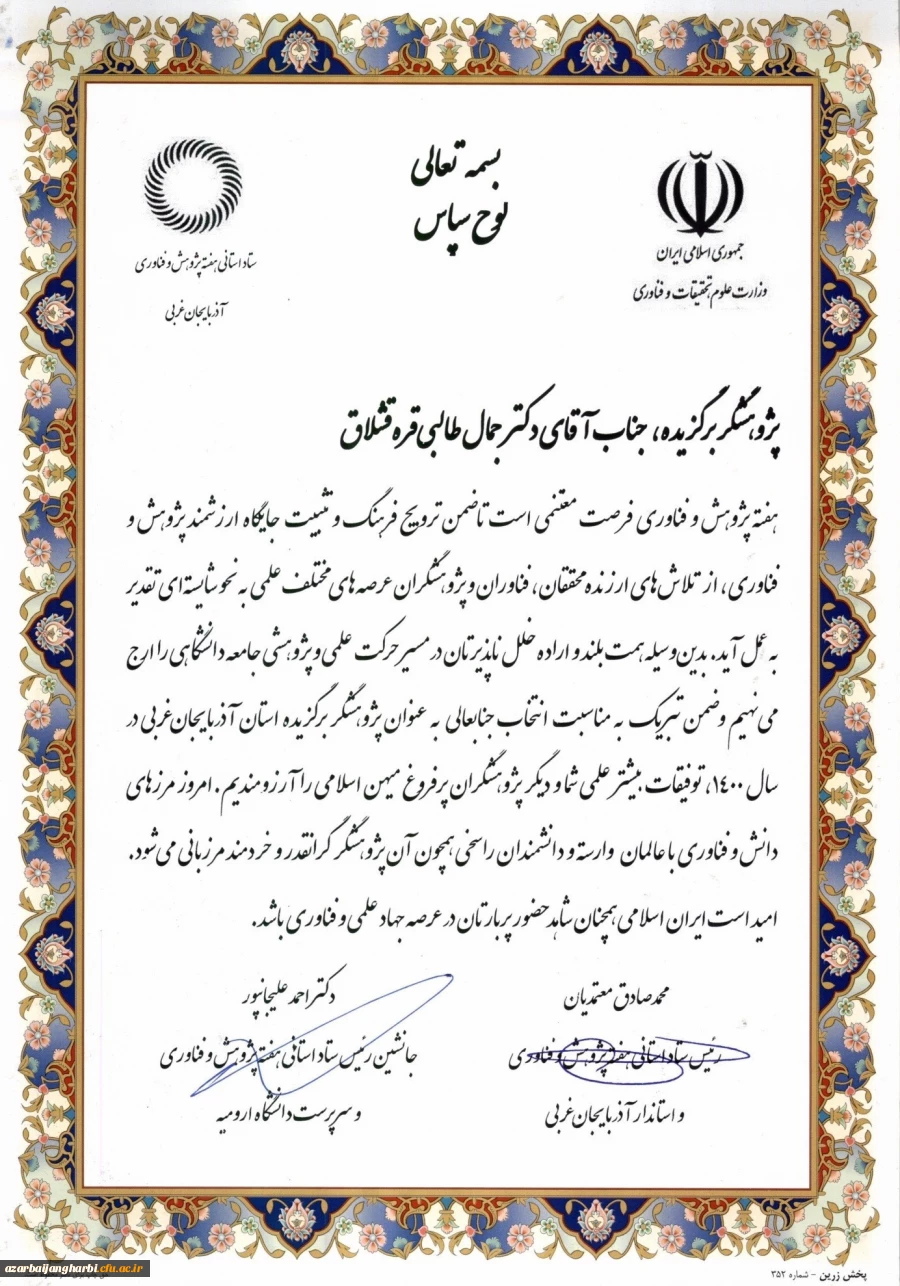 بسمه تعالی
لوح سپاس
جمهوری اسلامی ایران
وزارت علوم، تحقیقات و فناوری
ستاد استانی هفته پژوهش و فناوری
آذربایجان غربی
پژوهشگر برگزیده، جناب آقای دکتر جمال طالبی قره قشلاق
هفته پژوهش و فناوری فرصت مغتنمی است تا ضمن ترویج فرهنگ و تثبیت جایگاه ارزشمند پژوهش و
فناوری، از تلاش‌های ارزنده محققان، فناوران و پژوهشگران عرصه‌های مختلف علمی به نحو شایسته‌ای تقدیر
به عمل آید. بدین وسیله همت بلند و اراده خلل ناپذیرتان در مسیر حرکت علمی و پژوهشی جامعه دانشگاهی را ارج
می نهیم و ضمن تبریک به مناسبت انتخاب جنابعالی به عنوان پژوهشگر برگزیده استان آذربایجان‌غربی در
سال ۱۴۰۰، توفقیات بیشتر علمی شما و دیگر پژوهشگران پرفروغ میهن اسلامی را آرزومندیم. امروز مرزهای
دانش و فناوری با عالمان وارسته و دانشمندان راسخی همچون آن پژوهشگر گرانقدر و خردمند مرزبانی می‌شود.
امید است ایران اسلامی همچنان شاهد حضور پربارتان در عرصه جهاد علمی و فناوری باشد.
محمدصادق معتمدیان
رئیس ستاد استانی هفته پژوهش و فناوری
و استاندار آذربایجان‌غربی
دکتر احمد علیجانپور
جانشین رئیس ستاد استانی هفته پژوهش و فناوری
و سرپرست دانشگاه ارومیه
azarbaijangharbi.cfu.ac.ir
پخش زرین - شماره ۳۵۲